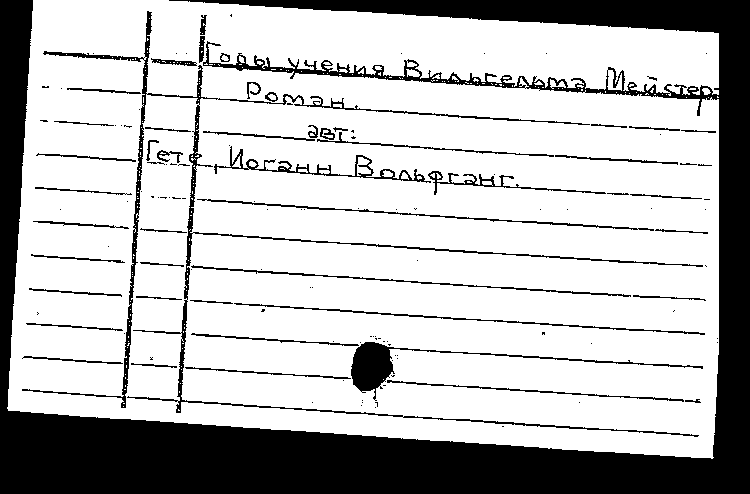 Годы учения Вильгельма Мейстер-
Роман.
авт:
Гете, Иоганн Вольфганг.